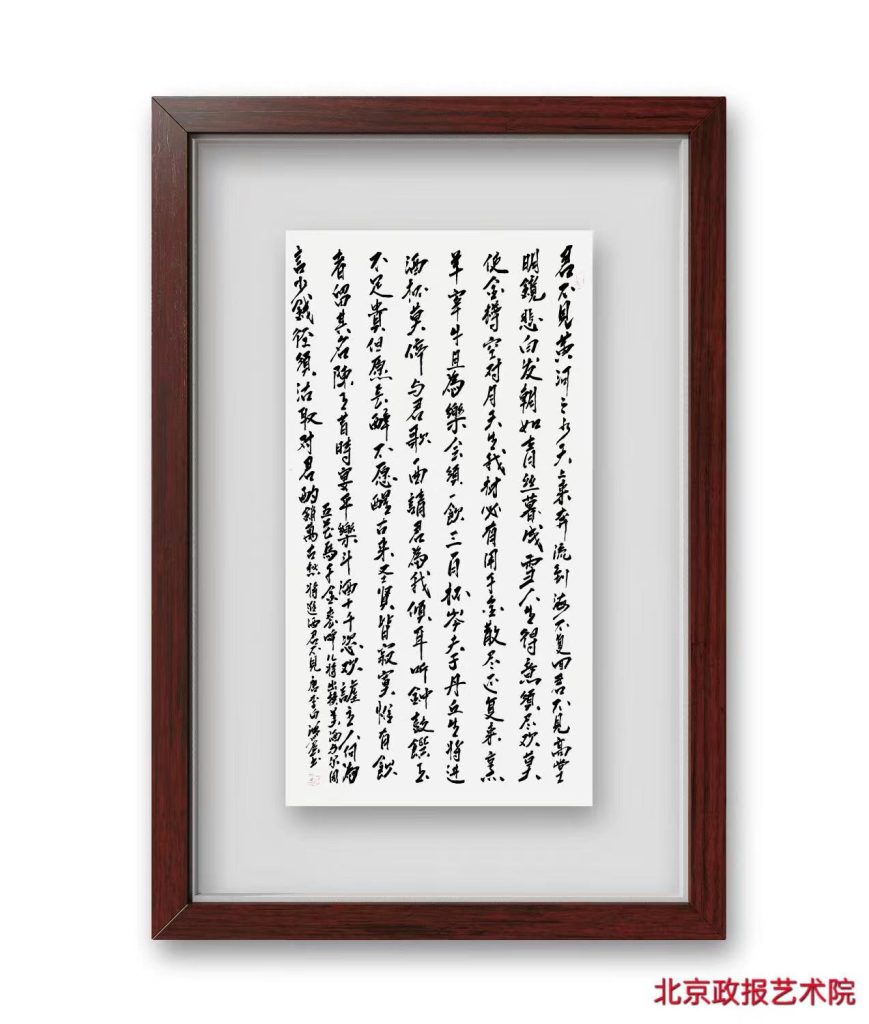 君不見黄河之水天上来奔流到海不复回君不見高堂
明鏡悲白发朝如青丝暮成雪人生得意須尽欢莫
使金樽空对月天生我材必有用千金散尽还复来烹
羊宰牛且為樂会須一飲三百杯岑夫子丹丘生将进
酒杯莫停与君歌一曲請君為我傾耳听鈡鼓饌玉
不足貴但愿長醉不愿醒古来圣賢皆寂寞惟有飲
者留其名陳王昔時宴平樂斗酒十千恣欢謔主人何為
言少錢径須沽取对君酌
五花馬千金裘呼儿将出换美酒与尔同
銷萬古愁将進酒君不見唐李白詩书
北京政报艺术院